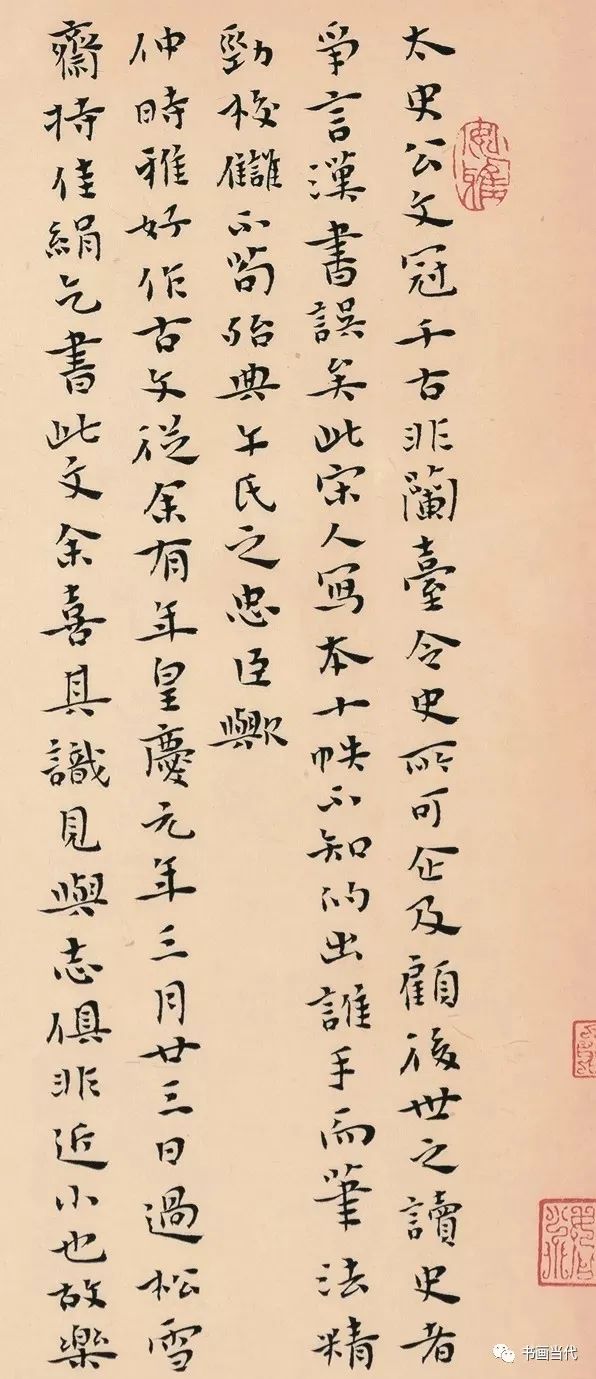 太史公文冠千古非蘭臺令史所可企及顧後世之讀史者
爭言漢書誤矣此宋人寫本十帙不知的出誰手而筆法精
勁校讎不苟殆典午氏之忠臣歟
仲時雅好作古文從余有年皇慶元年三月廿三日過松雪
齋持佳絹乞書此文余喜其識見與志俱非近小也故樂
书画当代